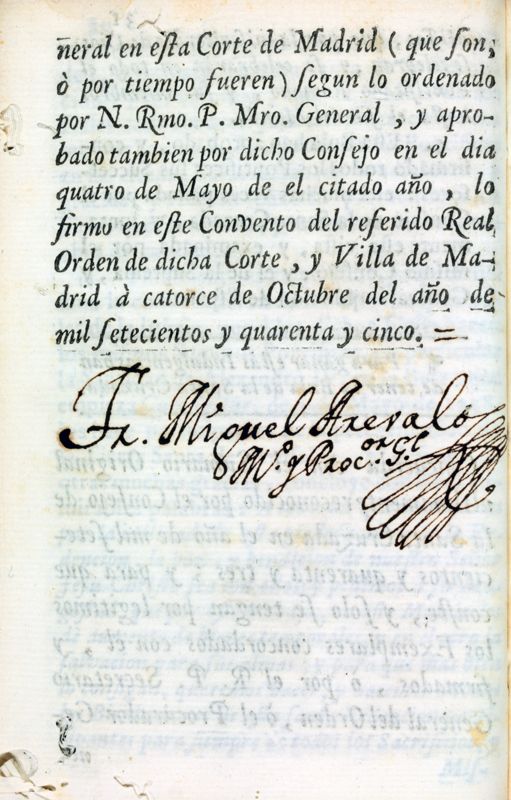 ñeral en eſta Corte de Madrid ( que ſon,
ò por tiempo fueren) ſegun lo ordenado
por N. Rmo. P. Mro. General , y apro-
bado tambien por dicho Conſejo en el dia
quatro de Mayo de el citado año , lo
firmo en eſte Convento del referido Real
Orden de dicha Corte , y Villa de Ma-
drid à catorce de Octubre del año de
mil ſetecientos y quarenta y cinco. =
Fr. Miguel Arevalo
M.º y Proc.or G.l